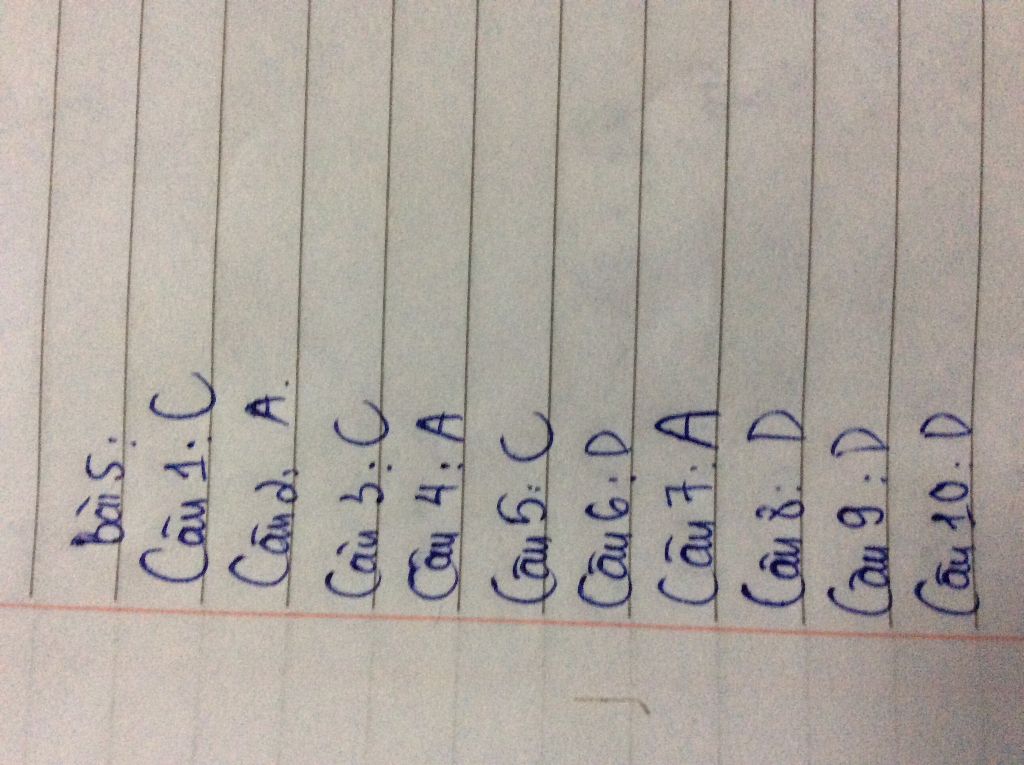 bài 5:
Câu 1: C
Câu 2: A.
Câu 3: C
Câu 4: A
Câu 5: C
Câu 6: D
Câu 7: A
Câu 8: D
Câu 9: D
Câu 10: D